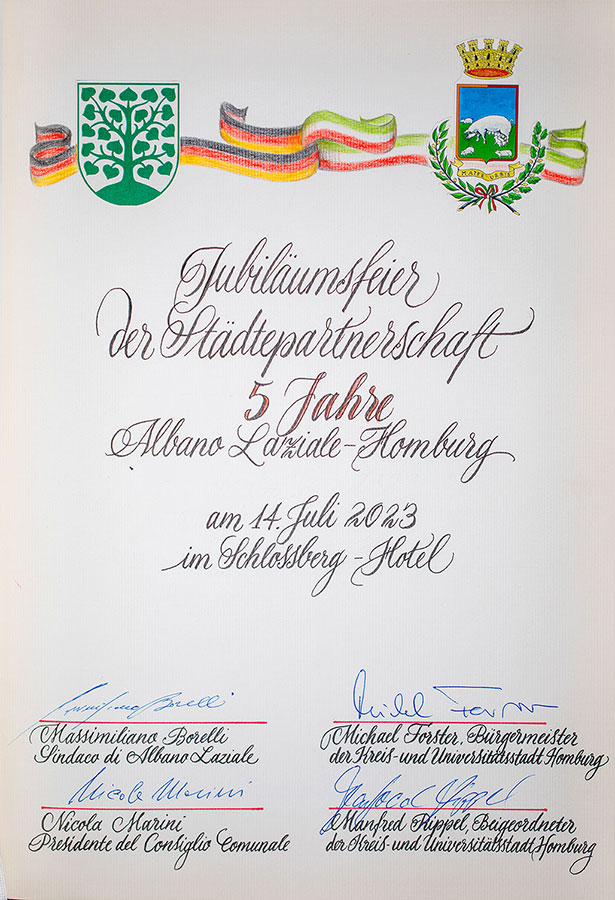 MATER URBIS
Jubiläumsfeier
der Städtepartnerschaft
5 Jahre
Albano Laziale-Homburg
am 14. Juli 2023
im Schlossberg-Hotel
Massimiliano Borelli
Sindaco di Albano Laziale
Michael Forster, Bürgermeister
der Kreis- und Universitätsstadt Homburg
Nicola Marini
Nicola Marini
Presidente del Consiglio Comunale
Manfred Rippel, Beigeordneter
der Kreis- und Universitätsstadt Homburg